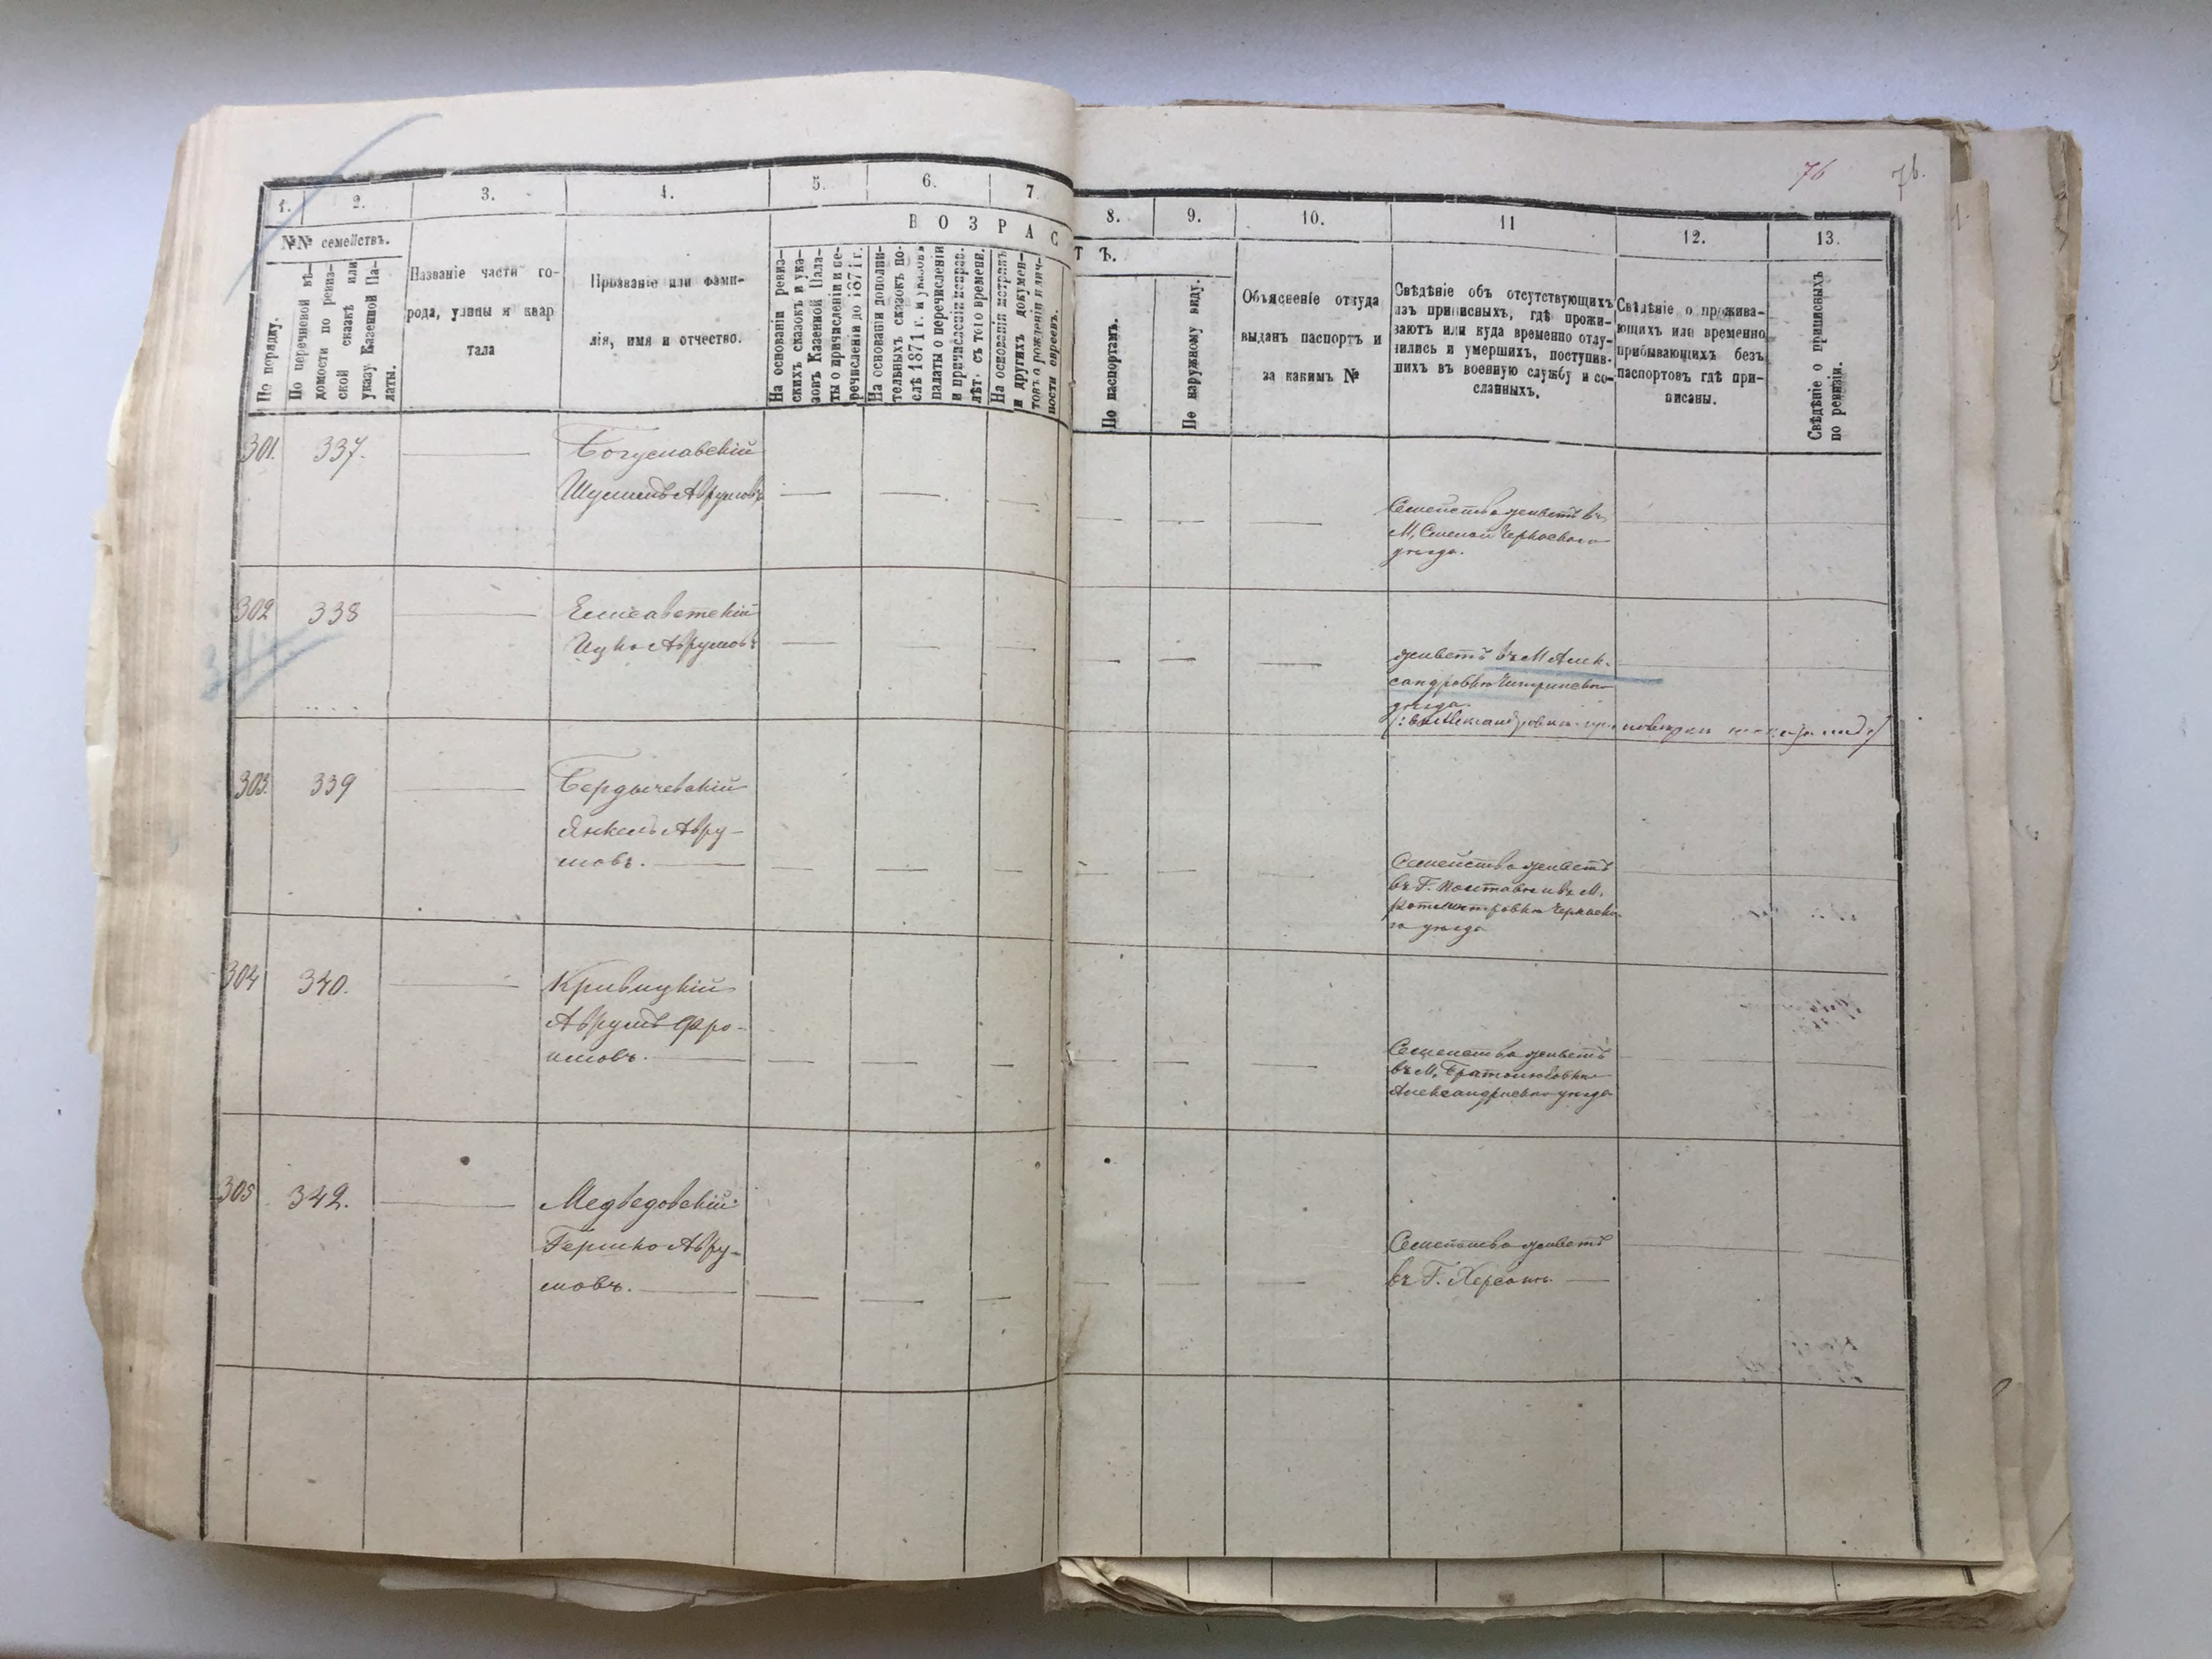 76 76.
1. 2. 3. 4. 5. 6. 7. 8. 9. 10. 11 12. 13.
№№ семействъ.
По порядку.
По перечневой вѣ-
домости по ревиз-
ской сказкѣ или
указу Казенной Па-
латы.
Названіе части го-
рода, улицы и квар
тала
Прозваніе или фами-
лія, имя и отчество.
ВОЗРАСТЪ.
На основаніи ревиз-
скихъ сказокъ и ука-
зовъ Казенной Пала-
ты о причисленіи и пе-
речисленіи до 1871 г.
На основаніи дополни-
тельныхъ сказокъ по-
слѣ 1871 г. и указовъ
палаты о перечисленіи
и причисленіи
лѣтъ съ того времени.
На основаніи метрикъ
и другихъ докумен-
товъ о рожденіи и лич-
ности евреевъ.
По паспортамъ.
По наружному виду.
Объясненіе откуда
выданъ паспортъ и
за какимъ №
Свѣдѣніе объ отсутствующихъ
изъ приписныхъ, гдѣ прожи-
ваютъ или куда временно отлу-
чились и умершихъ, поступив-
шихъ въ военную службу и со-
сланныхъ.
Свѣдѣніе о прожива-
ющихъ или временно
прибывающихъ безъ
паспортовъ гдѣ при-
писаны.
Свѣдѣніе о приписныхъ
по ревизіи.
301. 337. Богуславскій
Шулимъ Аврумовъ
Семейство живетъ въ
М. Смелой Черкаскаго
уѣзда.
302 338 Елисаветскій
Ицко Аврумовъ
живетъ въ М Алек-
сандровкѣ Чигиринскаго
уѣзда.
303. 339 Бердычевскій
Янкель Авру-
мовъ.
Семейство живетъ
въ Г. Полтавѣ и въ М.
Ротмистровкѣ Черкаска-
го уѣзда
304 340. Кривицкій
Аврумъ Фро-
имовъ.
Семейство живетъ
въ М. Братолюбовкѣ
Александрійскаго уѣзда
305 342. Медведовскій
Гершко Авру-
мовъ.
Семейство живетъ
въ Г. Херсонѣ.